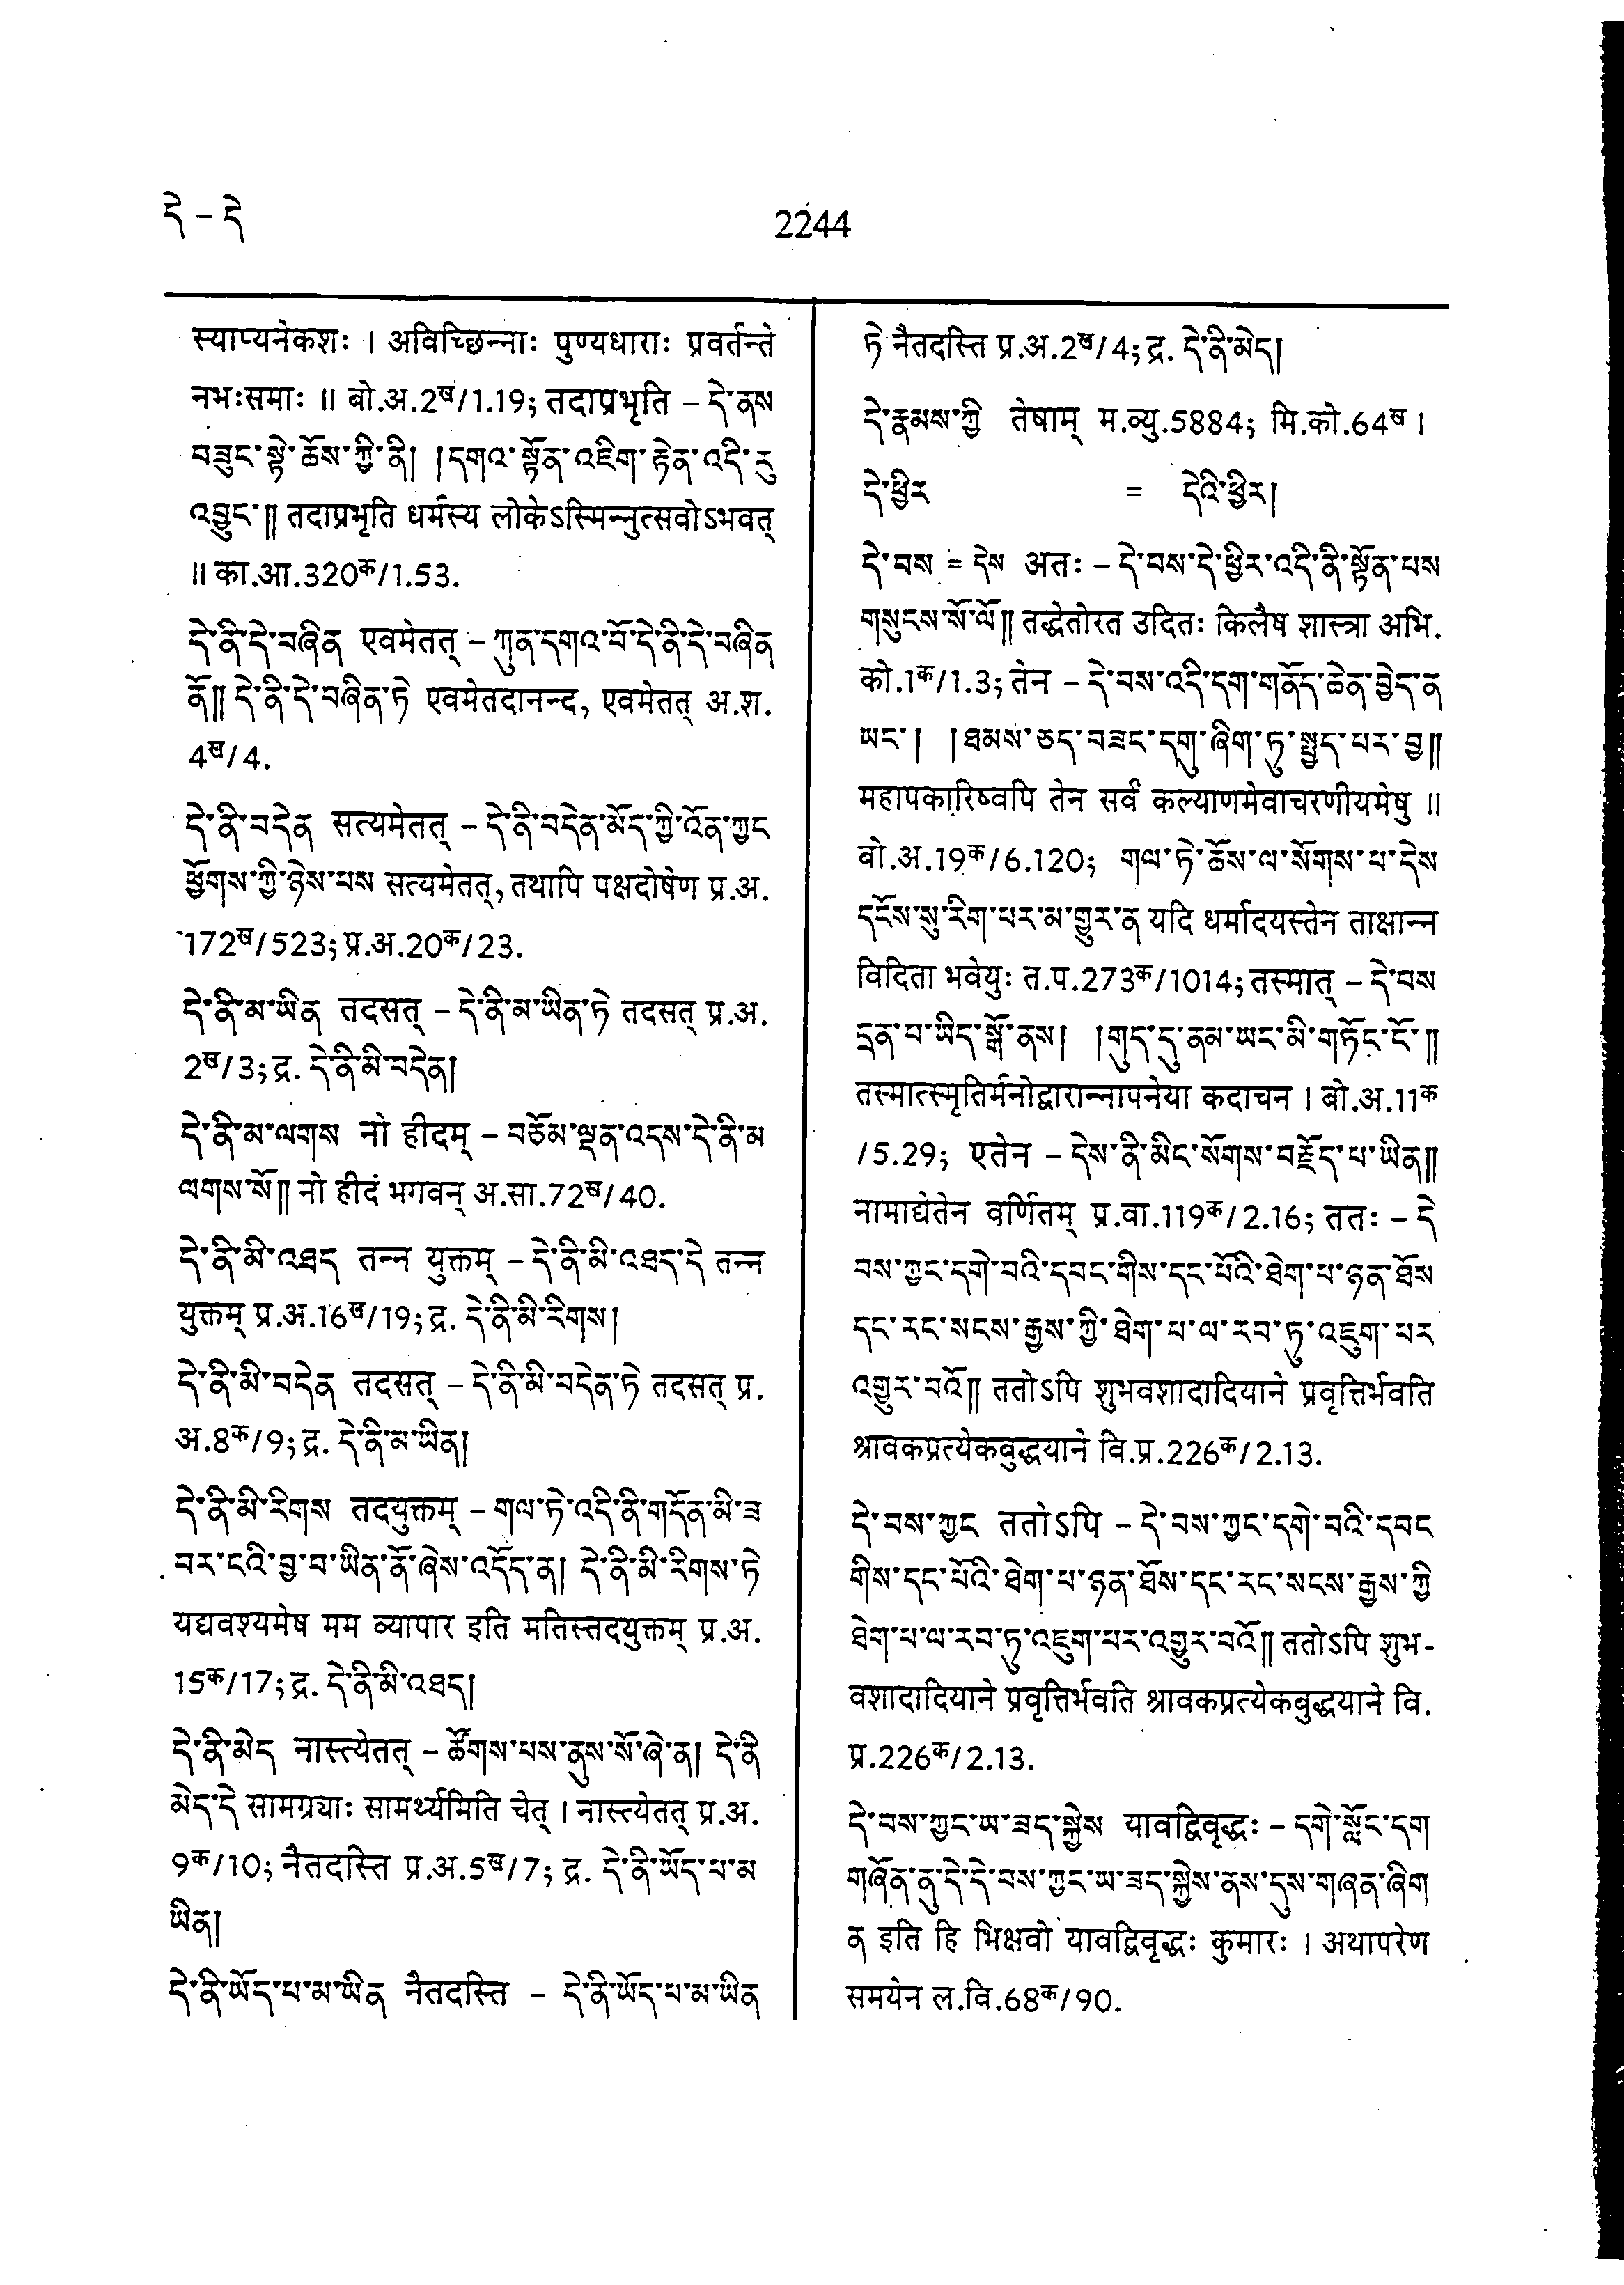 དེ – དེ
2244
स्याप्यनेकशः । अविच्छिन्नाः पुण्यधाराः प्रवर्तन्ते
नभःसमाः ॥ बो.अ.2ख/1.19; तदाप्रभृति – དེ་ནས
བཟུང་སྟེ་ཆོས་ཀྱི་ནི། །དགའ་སྟོན་འཇིག་རྟེན་འདི་རུ
འབྱུང་༎ तदाप्रभृति धर्मस्य लोकेऽस्मिन्नुत्सवोऽभवत्
॥ का.आ.320क/1.53.
དེ་ནི་དེ་བཞིན एवमेतत् – ཀུན་དགའ་བོ་དེ་ནི་དེ་བཞིན
ནོ༎ དེ་ནི་དེ་བཞིན་ཏེ एवमेतदानन्द, एवमेतत् अ.श.
4ख/4.
དེ་ནི་བདེན सत्यमेतत् – དེ་ནི་བདེན་མོད་ཀྱི་འོན་ཀྱང
ཕྱོགས་ཀྱི་ཉེས་པས सत्यमेतत्, तथापि पक्षदोषेण प्र.अ.
172ख/523; प्र.अ.20क/23.
དེ་ནི་མ་ཡིན तदसत् – དེ་ནི་མ་ཡིན་ཏེ तदसत् प्र.अ.
2ख/3; द्र. དེ་ནི་མི་བདེན།
དེ་ནི་མ་ལགས नो हीदम् – བཅོམ་ལྡན་འདས་དེ་ནི་མ
ལགས་སོ༎ नो हीदं भगवन् अ.सा.72ख/40.
དེ་ནི་མི་འཐད तन्न युक्तम् – དེ་ནི་མི་འཐད་དེ तन्न
युक्तम् प्र.अ.16ख/19; द्र. དེ་ནི་མི་རིགས།
དེ་ནི་མི་བདེན तदसत् – དེ་ནི་མི་བདེན་ཏེ तदसत् प्र.
अ.8क/9; द्र. དེ་ནི་མ་ཡིན།
དེ་ནི་མི་རིགས तदयुक्तम् – གལ་ཏེ་འདི་ནི་གདོན་མི་ཟ
བར་ངའི་བྱ་བ་ཡིན་ནོ་ཞེས་འདོད་ན། དེ་ནི་མི་རིགས་ཏེ
यद्यवश्यमेष मम व्यापार इति मतिस्तदयुक्तम् प्र.अ.
15क/17; द्र. དེ་ནི་མི་འཐད།
དེ་ནི་མེད नास्त्येतत् – ཚོགས་པས་ནུས་སོ་ཞེ་ན། དེ་ནི
མེད་དེ सामग्र्याः सामर्थ्यमिति चेत् । नास्त्येतत् प्र.अ.
9क/10; नैतदस्ति प्र.अ.5ख/7; द्र. དེ་ནི་ཡོད་པ་མ
ཡིན།
དེ་ནི་ཡོད་པ་མ་ཡིན नैतदस्ति – དེ་ནི་ཡོད་པ་མ་ཡིན
ཏེ नैतदस्ति प्र.अ.2ख/4; द्र. དེ་ནི་མེད།
དེ་རྣམས་ཀྱི तेषाम् म.व्यु.5884; मि.को.64ख ।
དེ་ཕྱིར = དེའི་ཕྱིར།
དེ་བས = དེས अतः – དེ་བས་དེ་ཕྱིར་འདི་ནི་སྟོན་པས
གསུངས་སོ་ལོ༎ तद्धेतोरत उदितः किलैष शास्त्रा अभि.
को.1क/1.3; तेन – དེ་བས་འདི་དག་གནོད་ཆེན་བྱེད་ན
ཡང་། །ཐམས་ཅད་བཟང་དགུ་ཞིག་ཏུ་སྤྱད་པར་བྱ༎
महापकारिष्वपि तेन सर्वं कल्याणमेवाचरणीयमेषु ॥
बो.अ.19क/6.120; གལ་ཏེ་ཆོས་ལ་སོགས་པ་དེས
དངོས་སུ་རིག་པར་མ་གྱུར་ན यदि धर्मादयस्तेन ताक्षान्न
विदिता भवेयुः त.प.273क/1014; तस्मात् – དེ་བས
དྲན་པ་ཡིད་སྒོ་ནས། །གུད་དུ་ནམ་ཡང་མི་གཏོང་ངོ་༎
तस्मात्स्मृतिर्मनोद्वारान्नापनेया कदाचन । बो.अ.11क
/5.29; एतेन – དེས་ནི་མིང་སོགས་བརྗོད་པ་ཡིན༎
नामाद्येतेन वर्णितम् प्र.वा.119क/2.16; ततः – དེ
བས་ཀྱང་དགེ་བའི་དབང་གིས་དང་པོའི་ཐེག་པ་ཉན་ཐོས
དང་རང་སངས་རྒྱས་ཀྱི་ཐེག་པ་ལ་རབ་ཏུ་འཇུག་པར
འགྱུར་བའོ༎ ततोऽपि शुभवशादादियाने प्रवृत्तिर्भवति
श्रावकप्रत्येकबुद्धयाने वि.प्र.226क/2.13.
དེ་བས་ཀྱང ततोऽपि – དེ་བས་ཀྱང་དགེ་བའི་དབང
གིས་དང་པོའི་ཐེག་པ་ཉན་ཐོས་དང་རང་སངས་རྒྱས་ཀྱི
ཐེག་པ་ལ་རབ་ཏུ་འཇུག་པར་འགྱུར་བའོ༎ ततोऽपि शुभ-
वशादादियाने प्रवृत्तिर्भवति श्रावकप्रत्येकबुद्धयाने वि.
प्र.226क/2.13.
དེ་བས་ཀྱང་ཡ་ཟད་སྐྱེས यावद्विवृद्धः – དགེ་སློང་དག
གཞོན་ནུ་དེ་དེ་བས་ཀྱང་ཡ་ཟད་སྐྱེས་ནས་དུས་གཞན་ཞིག
ན इति हि भिक्षवो यावद्विवृद्धः कुमारः । अथापरेण
समयेन ल.वि.68क/90.